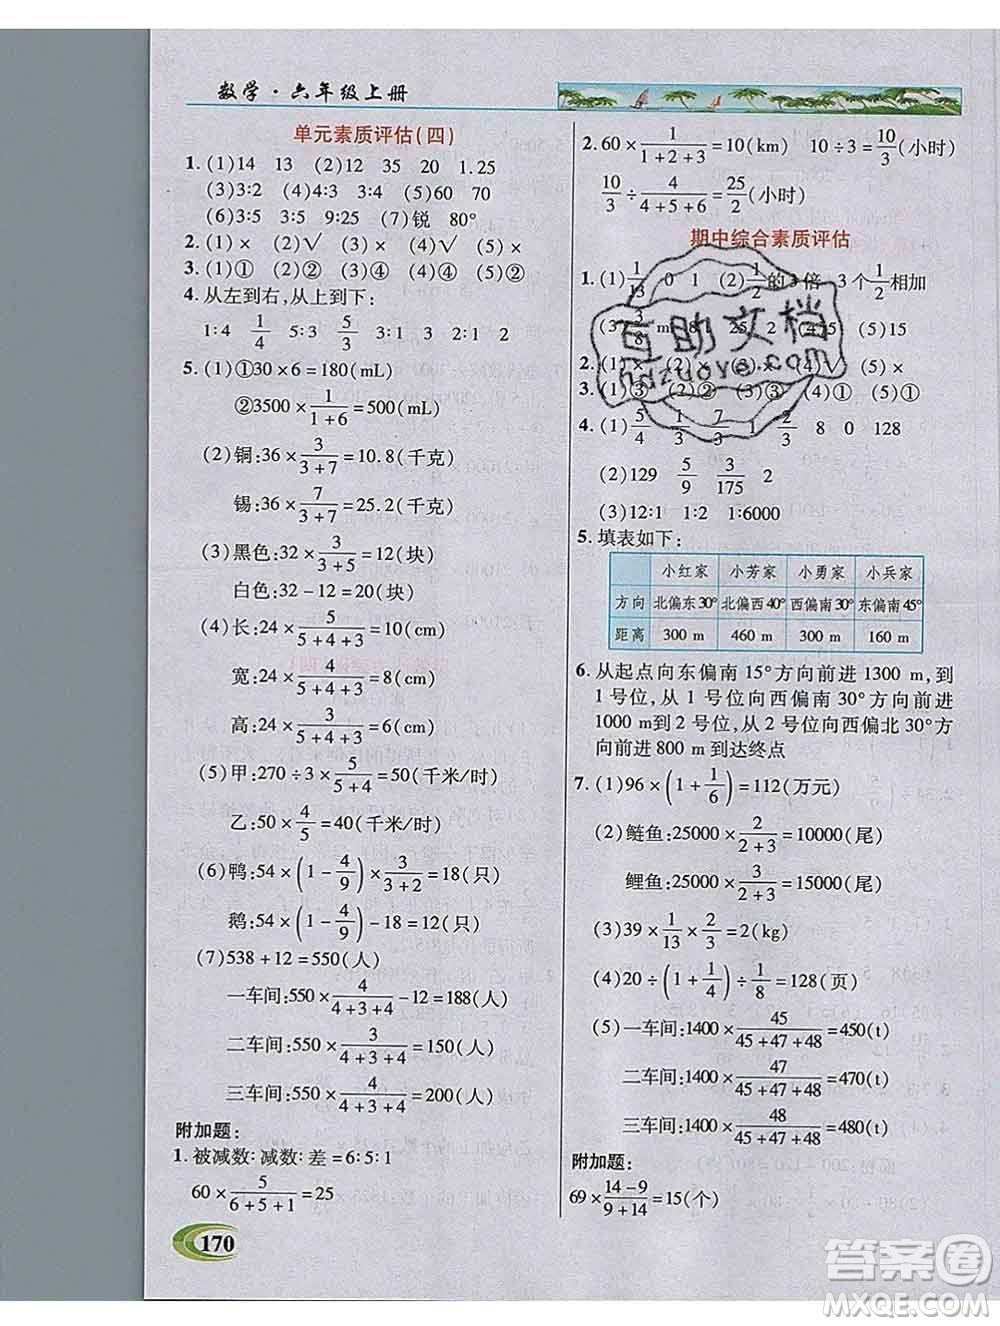 数学·六年级上册
单元素质评估(四)
1. (1)14 13 (2)12 35 20 1.25
(3)3∶2 (4)4∶3 (5)60 70
(6)3∶5 3∶5 9∶25 (7)锐 80°
2. (1)× (2)√ (3)× (4)√ (5)×
3. (1)① (2)② (3)④ (4)④ (5)②
4. 从左到右,从上到下:
1∶4 1/4 5∶3 5/3 3∶1 3 2∶1 2
5. (1)①30×6=180(mL)
②3500×1/(1+6)=500(mL)
(2)铜:36×3/(3+7)=10.8(千克)
锡:36×7/(3+7)=25.2(千克)
(3)黑色:32×3/(3+5)=12(块)
白色:32-12=20(块)
(4)长:24×5/(5+4+3)=10(cm)
宽:24×4/(5+4+3)=8(cm)
高:24×3/(5+4+3)=6(cm)
(5)甲:270÷3×5/(5+4)=50(千米/时)
乙:50×4/5=40(千米/时)
(6)鸭:54×(1-4/9)×3/(3+2)=18(只)
鹅:54×(1-4/9)-18=12(只)
(7)538+12=550(人)
一车间:550×4/(4+3+4)-12=188(人)
二车间:550×3/(4+3+4)=150(人)
三车间:550×4/(4+3+4)=200(人)
附加题:
1. 被减数∶减数∶差=6∶5∶1
60×5/(6+5+1)=25
170
2. 60×1/(1+2+3)=10(km) 10÷3=10/3(小时)
10/3÷4/(4+5+6)=25/2(小时)
期中综合素质评估
1. (1)1/13 0 1 (2)1/2的3倍 3个1/2相加
(3) 3/8 m 8 25 2 (4)5 (5)15
2. (1)× (2)× (3)× (4)√ (5)×
3. (1)③ (2)② (3)③ (4)① (5)①
4. (1)5/4 1/3 7/3 1 2/3 8 0 128
(2)129 5/9 3/175 2
(3)12∶1 1∶2 1∶6000
5. 填表如下:
小红家 小芳家 小勇家 小兵家
方向 北偏东30° 北偏西40° 西偏南30° 东偏南45°
距离 300 m 460 m 300 m 160 m
6. 从起点向东偏南 15°方向前进 1300 m,到
1 号位,从 1 号位向西偏南 30°方向前进
1000 m到 2 号位,从 2 号位向西偏北30°方
向前进 800 m 到达终点
7. (1)96×(1+1/6)=112(万元)
(2)鲢鱼:25000×2/(2+3)=10000(尾)
鲤鱼:25000×3/(2+3)=15000(尾)
(3)39×1/13×2/3=2(kg)
(4)20÷(1+1/4)÷1/8=128(页)
(5)一车间:1400×45/(45+47+48)=450(t)
二车间:1400×47/(45+47+48)=470(t)
三车间:1400×48/(45+47+48)=480(t)
附加题:
69×(14-9)/(9+14)=15(个)
互助文档
hdzuove.com
答案圈
MXQE.COM